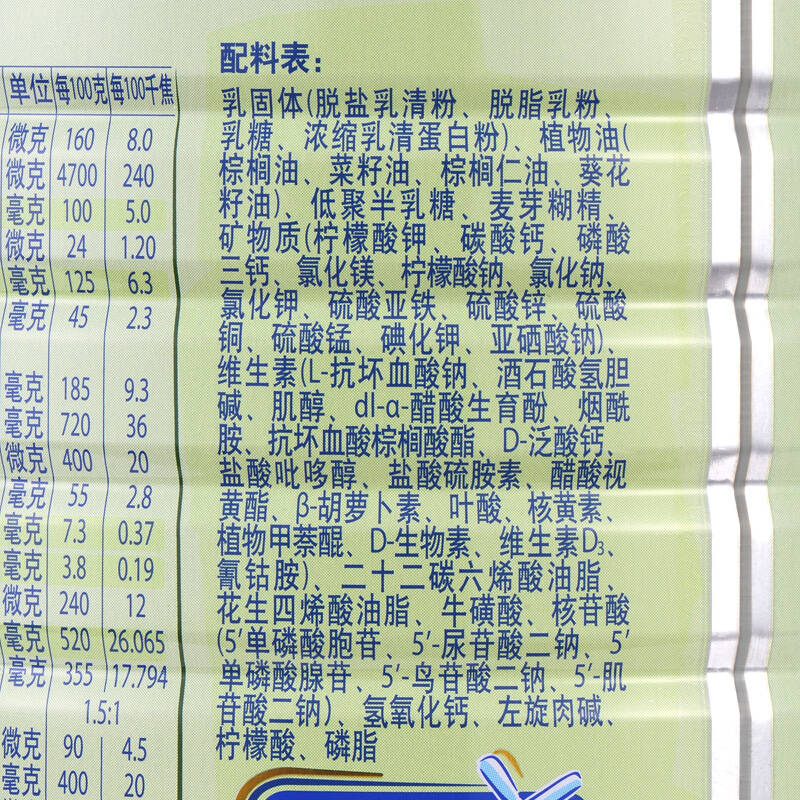 单位 每100克 每100千焦
微克 160 8.0
微克 4700 240
毫克 100 5.0
微克 24 1.20
毫克 125 6.3
毫克 45 2.3
毫克 185 9.3
毫克 720 36
微克 400 20
毫克 55 2.8
毫克 7.3 0.37
毫克 3.8 0.19
微克 240 12
毫克 520 26.065
毫克 355 17.794
1.5:1
微克 90 4.5
毫克 400 20
配料表：
乳固体(脱盐乳清粉、脱脂乳粉、
乳糖、浓缩乳清蛋白粉)、植物油(
棕榈油、菜籽油、棕榈仁油、葵花
籽油)、低聚半乳糖、麦芽糊精、
矿物质(柠檬酸钾、碳酸钙、磷酸
三钙、氯化镁、柠檬酸钠、氯化钠、
氯化钾、硫酸亚铁、硫酸锌、硫酸
铜、硫酸锰、碘化钾、亚硒酸钠)、
维生素(L-抗坏血酸钠、酒石酸氢胆
碱、肌醇、dl-α-醋酸生育酚、烟酰
胺、抗坏血酸棕榈酸酯、D-泛酸钙、
盐酸吡哆醇、盐酸硫胺素、醋酸视
黄酯、β-胡萝卜素、叶酸、核黄素、
植物甲萘醌、D-生物素、维生素D₃、
氰钴胺)、二十二碳六烯酸油脂、
花生四烯酸油脂、牛磺酸、核苷酸
(5′单磷酸胞苷、5′-尿苷酸二钠、5′
单磷酸腺苷、5′-鸟苷酸二钠、5′-肌
苷酸二钠)、氢氧化钙、左旋肉碱、
柠檬酸、磷脂